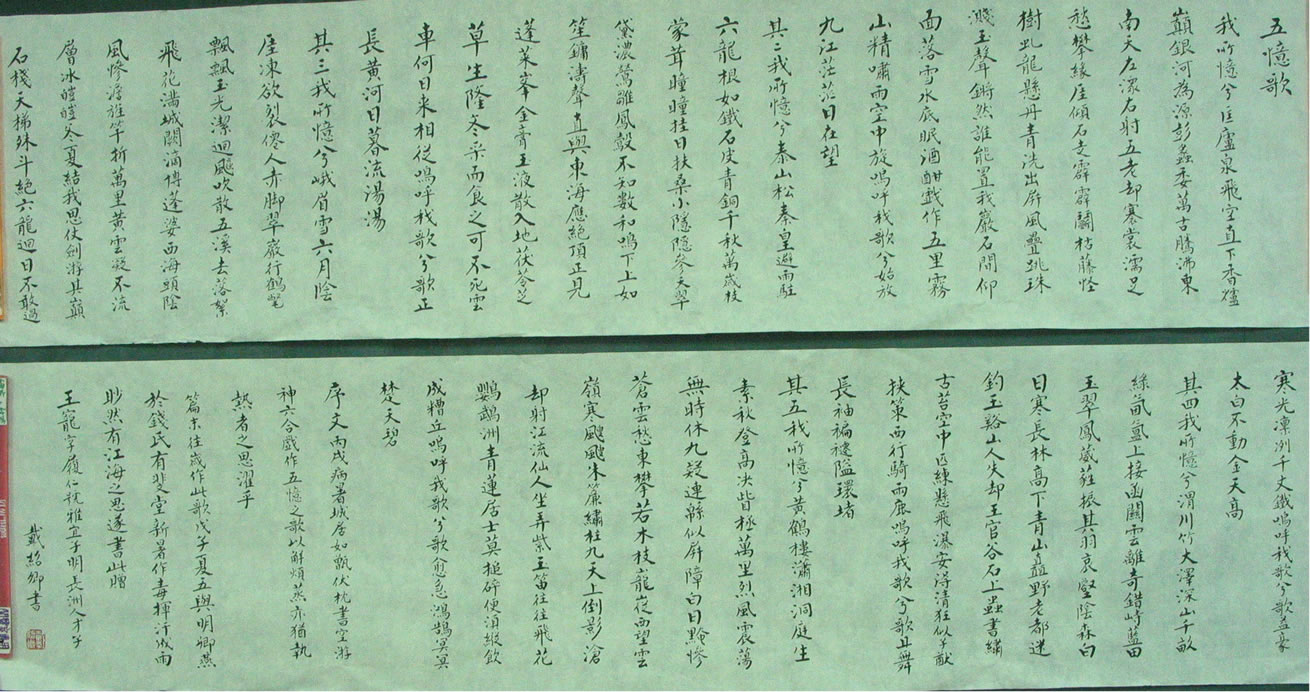 五憶歌
我所憶兮匡廬泉飛空直下香爐
巔銀河為源彭蠡委萬古騰沸東
南天左瀠右射五老却褰裳濡足
愁攀緣崖傾石走霹靂鬬枯藤怪
樹虬龍懸丹青洗出屏風疊跳珠
濺玉聲鏘然誰能置我巖石間仰
面落雪水底眠酒酣戲作五里霧
山精嘯雨空中旋嗚呼我歌兮始放
九江茫茫日在望
其二我所憶兮泰山松秦皇避雨駐
六龍根如鐵石皮青銅千秋萬歲枝
蒙茸曈曈挂日扶桑小隱隱參天翠
黛濃鶯雛鳳鷇不知數和鳴下上如
笙鏞濤聲直與東海應絕頂正見
蓬萊峯金膏玉液散入地茯苓之
草生隆冬采而食之可不死雲
車何日來相從嗚呼我歌兮歌正
長黃河日暮流湯湯
其三我所憶兮峨眉雪六月陰
崖凍欲裂僊人赤脚翠巖行鶴氅
飄飄玉光潔迴颷吹散五溪去落絮
飛花滿城闕滴博蓬婆西海頭陰
風慘澹旌竿折萬里黃雲凝不流
層冰皚皚冬夏結我思仗劍游其巔
石棧天梯殊斗絕六龍迴日不敢過
寒光凜冽千丈鐵嗚呼我歌兮歌益豪
太白不動金天高
其四我所憶兮渭川竹大澤深山千畝
綠氤氳上接函關雲離奇錯崎藍田
玉翠鳳葳蕤振其羽哀壑陰森白
日寒長林高下青山益野老都迷
釣玉谿山人失却王官谷石上蟲書繡
古苔空中匹練懸飛瀑安得清狂似子猷
挾策西行騎雨鹿嗚呼我歌兮歌且舞
長袖褊褼隘環堵
其五我所憶兮黃鶴樓瀟湘洞庭生
素秋登高決眥極萬里烈風震蕩
無時休九疑連緜似屏障白日黲慘
蒼雲愁東攀若木枝巃嵸西望雲
嶺寒颼颼朱簾繡柱九天上倒影滄
却射江流仙人坐弄紫玉笛往往飛花
鸚鵡洲青蓮居士莫搥碎便須緞飲
成糟丘嗚呼我歌兮歌愈急鴻鵠冥冥
楚天碧
序文丙戌病暑城居如甑伏枕書空游
神六合戲作五憶之歌以解煩蒸亦猶執
熱者之思濯乎
篇末往歲作此歌戊子夏五與明卿燕
於錢氏有斐堂新暑作毒揮汗成雨
眇然有江海之思遂書此贈
王寵字履仁稅雅宜子明長洲人才子
戴紹卿書